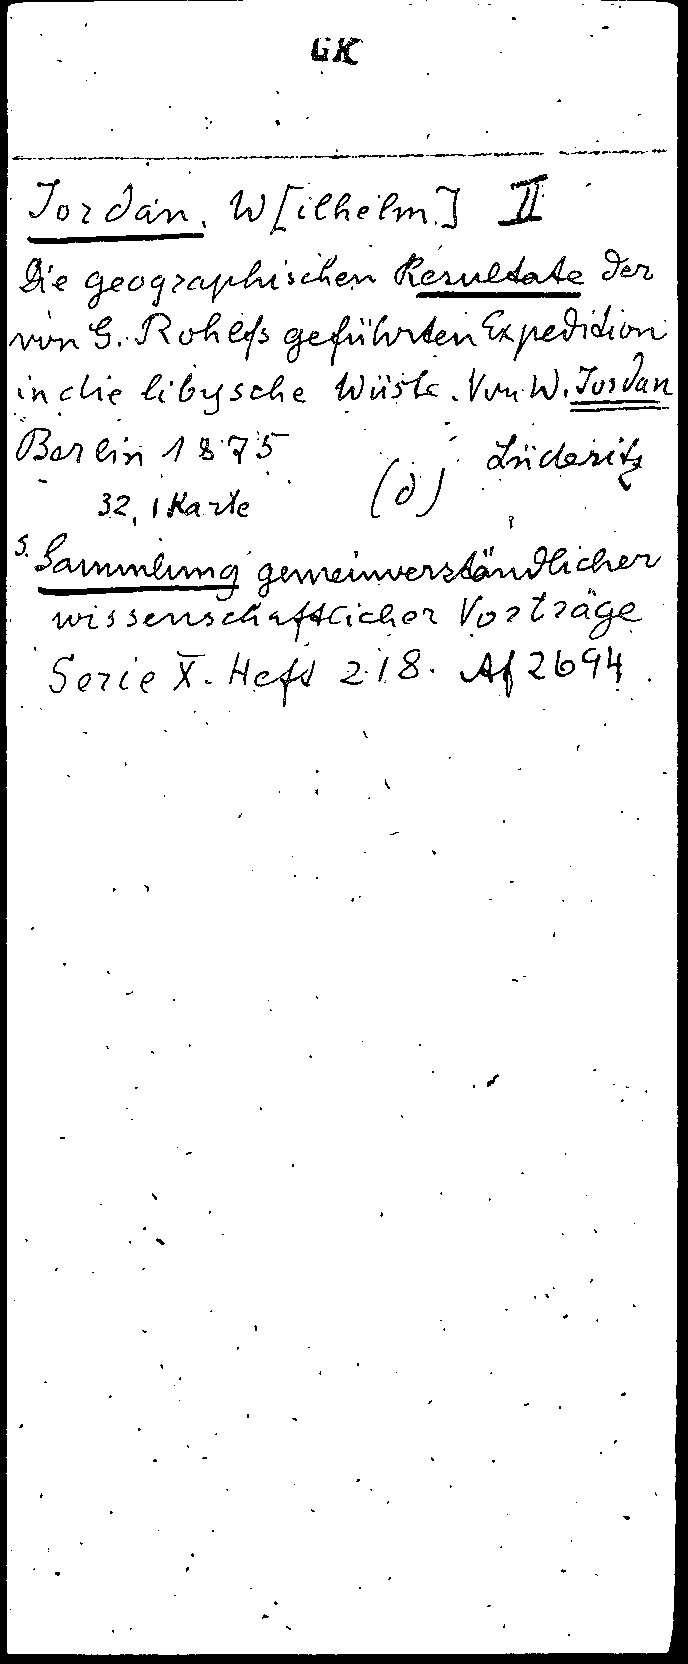 GK
Jordan, W[ilhelm.] II
Die geographischen Resultate der
von G. Rohlfs geführten Expedition
in die libysche Wüste. Von W. Jordan
Berlin 1875 Lüderitz
32, 1 Karte (8)
s. Sammlung gemeinverständlicher
wissenschaftlicher Vorträge
Serie X. Heft 218. Af 2694